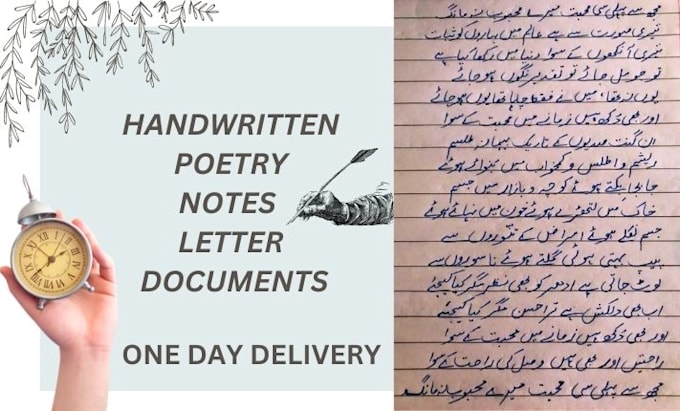 HANDWRITTEN
POETRY
NOTES
LETTER
DOCUMENTS
ONE DAY DELIVERY
مجھ سے پہلی سی محبت میرے محبوب نہ مانگ
تیری صورت سے ہے عالم میں بہاروں کو ثبات
تیری آنکھوں کے سوا دنیا میں رکھا کیا ہے
تو جو مل جائے تو تقدیر نگوں ہو جائے
یوں نہ تھا، میں نے فقط چاہا تھا یوں ہو جائے
اور بھی دکھ ہیں زمانے میں محبت کے سوا
ان گنت صدیوں کے تاریک بہیمانہ طلسم
ریشم و اطلس و کمخواب میں بنوائے ہوئے
جا بجا بکتے ہوئے کوچہ و بازار میں جسم
خاک میں لتھڑے ہوئے خون میں نہائے ہوئے
جسم نکلے ہوئے امراض کے تنوروں سے
پیپ بہتی ہوئی گلتے ہوئے ناسوروں سے
لوٹ جاتی ہے ادھر کو بھی نظر مگر کیا کیجئے
اب بھی دلکش ہے ترا حسن مگر کیا کیجئے
اور بھی دکھ ہیں زمانے میں محبت کے سوا
راحتیں اور بھی ہیں وصل کی راحت کے سوا
مجھ سے پہلی سی محبت میرے محبوب نہ مانگ